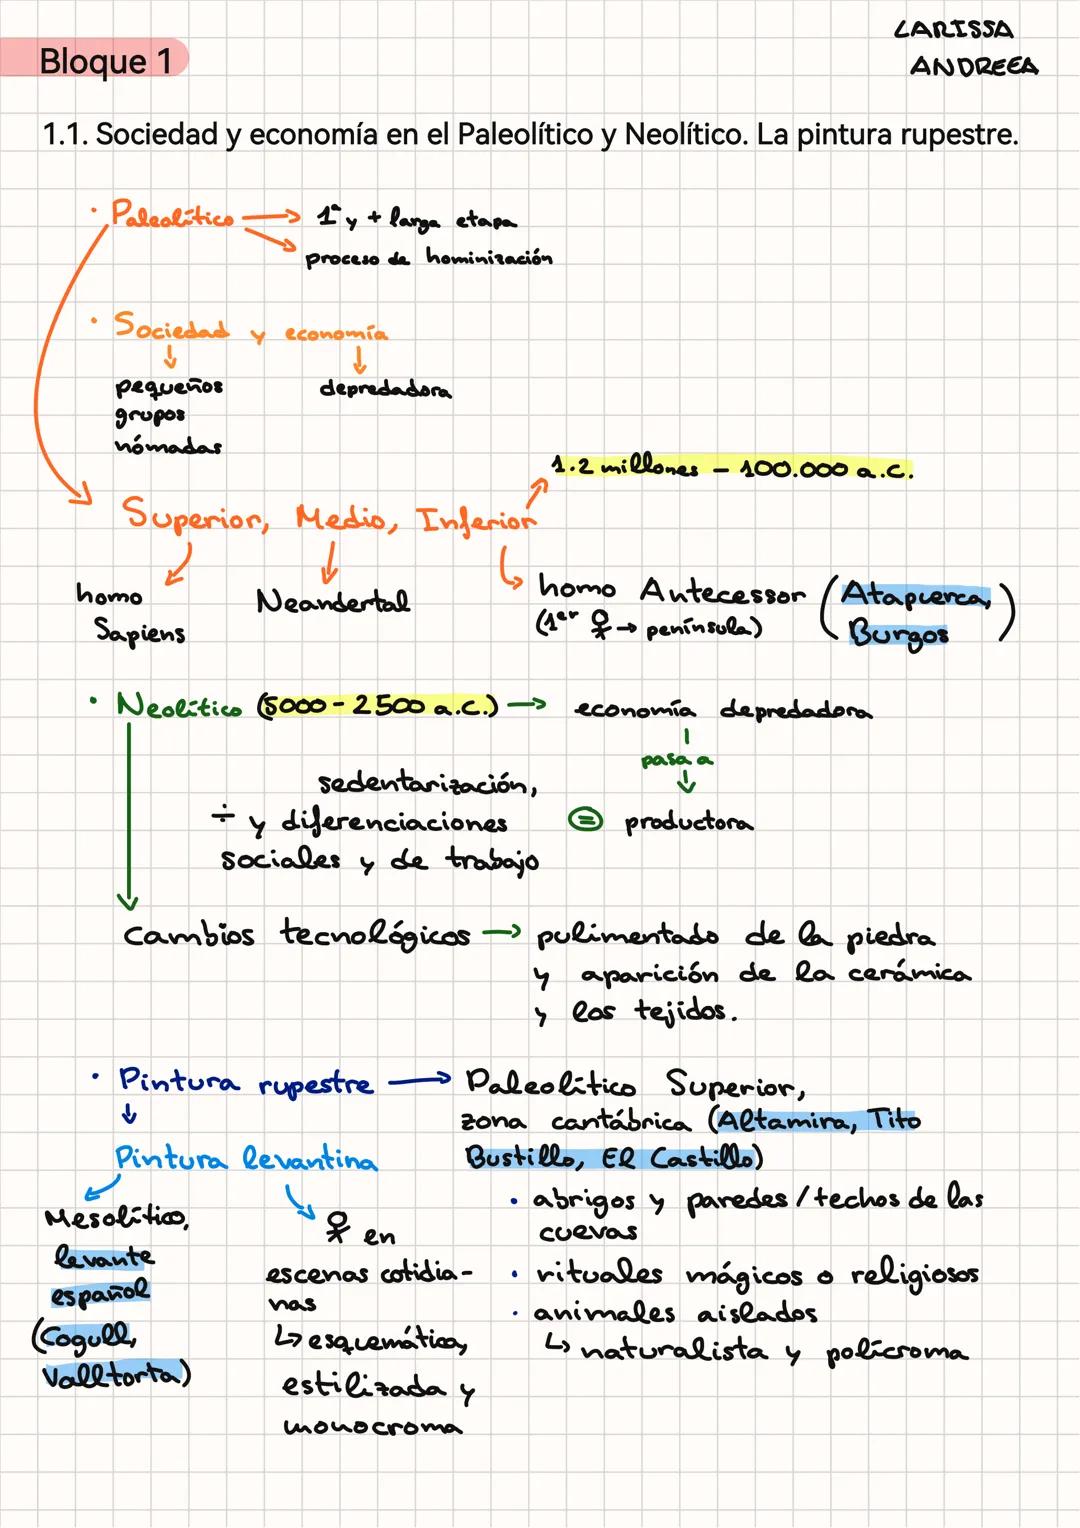 LARISSA
ANDREEA
Bloque 1
1.1. Sociedad y economía en el Paleolítico y Neolítico. La pintura rupestre.
· Paleolítico → 1ª y + larga etapa
proceso de hominización
· Sociedad y economía
pequeños depredadora
grupos
nómadas
1.2 millones - 100.000 a.C.
Superior, Medio, Inferior
homo Neandertal homo Antecessor (Atapuerca,
Sapiens (1er ♀ → península) Burgos)
· Neolítico (5000 - 2500 a.C.) → economía depredadora
pasa a
sedentarización,
÷ y diferenciaciones = productora
sociales y de trabajo
cambios tecnológicos → pulimentado de la piedra
y aparición de la cerámica
y los tejidos.
· Pintura rupestre → Paleolítico Superior,
zona cantábrica (Altamira, Tito
Pintura levantina Bustillo, El Castillo)
· abrigos y paredes / techos de las
cuevas
· rituales mágicos o religiosos
· animales aislados
↳ naturalista y polícroma
Mesolítico,
levante
español
(Cogull,
Valltorta)
♀ en
escenas cotidia-
nas
↳ esquemática,
estilizada y
monocroma